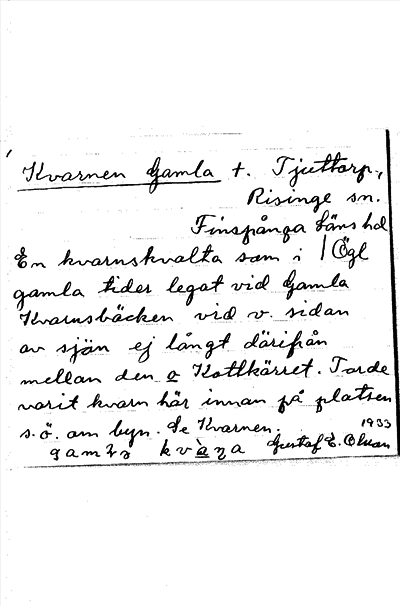 Kvarnen Gamla t. Tjuttorp,
Risinge sn.
Finspånga läns hd
En kvarnskvalta som i / Ögl
gamla tider legat vid Gamla
Kvarnsbäcken vid v. sidan
av sjön ej långt därifrån
mellan den o Kottkärret. Torde
varit kvarn här innan på platsen
s.ö. om byn. Se Kvarnen.
1933
Gustaf E. Olsson